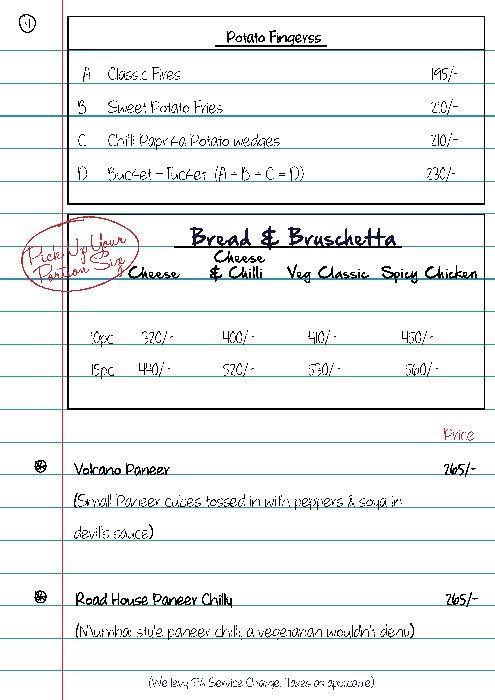 Potato Fingerss
A Classic Fires 195/-
B Sweet Potato Fries 210/-
C Chilli Paprika Potato wedges 210/-
D Bucket - Tucket (A + B + C = D) 230/-
Pick Up Your
Portion Size
Bread & Bruschetta
Cheese Cheese & Chilli Veg Classic Spicy Chicken
10pc 320/- 400/- 410/- 450/-
15pc 440/- 520/- 530/- 560/-
Price
Volcano Paneer 265/-
(Small Paneer cubes tossed in with peppers & soya in
devil's sauce)
Road House Paneer Chilly 265/-
(Mumbai style paneer chilli, a vegetarian wouldn't deny)
(We levy Service Charge. Taxes as applicable)